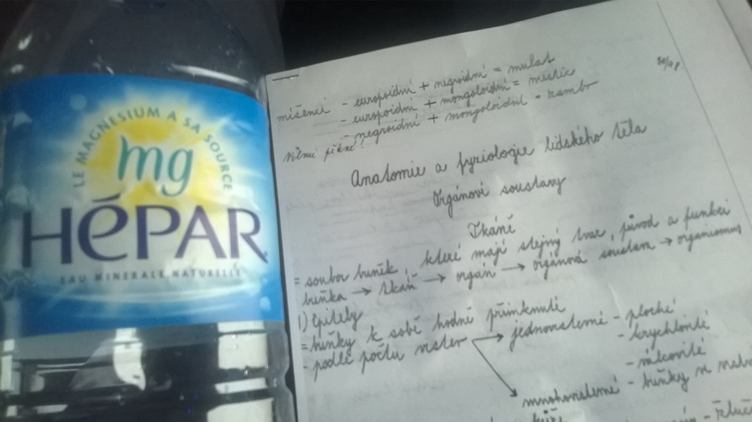 LE MAGNESIUM A SA SOURCE
mg
HÉPAR
EAU MINERALE NATURELLE
míšenci - europoidní + negroidní = mulat
- europoidní + mongoloidní = mestic
- negroidní + mongoloidní = zambo
Anatomie a fyziologie lidského těla
Orgánové soustavy
Tkáně
= soubor buněk, které mají stejný tvar, původ a funkci
buňka → tkáň → orgán → orgánová soustava → organismus
1) Epitely
= buňky k sobě hodně přimknuté
- podle počtu vrstev → jednovrstevné - ploché
- krychlovité
- válcovité
mnohovrstevné - buňky